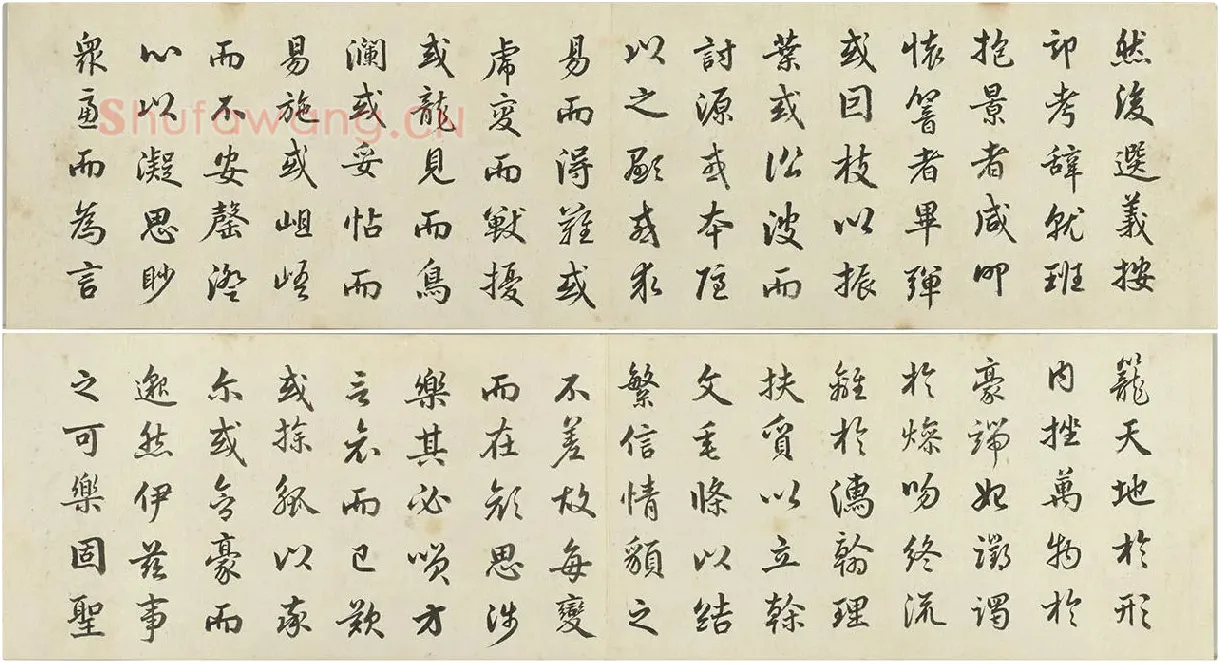 然後選義按
部考辭就班
抱景者咸叩
懷響者畢彈
或因枝以振
葉或沿波而
討源或本隱
以之顯或求
易而得難或
虎變而獸擾
或龍見而鳥
瀾或妥帖而
易施或岨峿
而不安罄澄
心以凝思眇
衆慮而為言
籠天地於形
内挫萬物於
豪端始躑躅
於燥吻終流
離於濡翰理
扶質以立幹
文垂條以結
繁信情貌之
不差故每變
而在顏思涉
樂其必笑方
言哀而已歎
或操觚以率
尔或含豪而
邈然伊茲事
之可樂固聖
Shufawang.cn